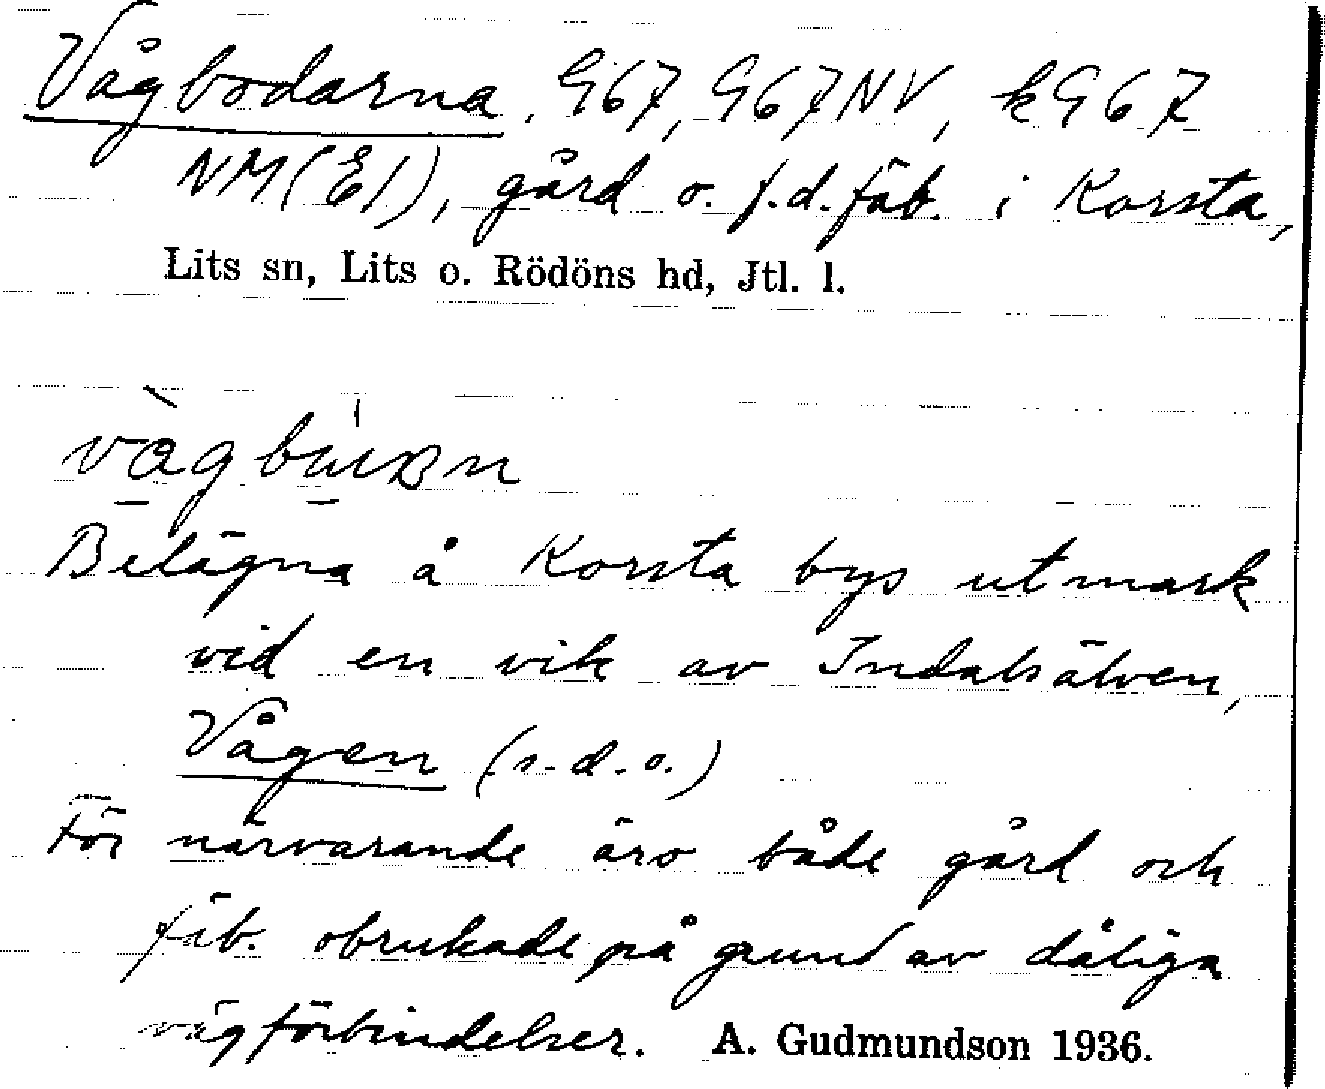 Vågbodarna, G67, G67NV, kG67
NM(E1), gård o. f.d. fäb. i Korsta,
Lits sn, Lits o. Rödöns hd, Jtl. l.
Belägna å Korsta bys utmark
vid en vik av Indalsälven,
Vågen (s.d.o.)
För närvarande äro både gård och
fäb. obrukade på grund av dåliga
vägförbindelser. A. Gudmundson 1936.